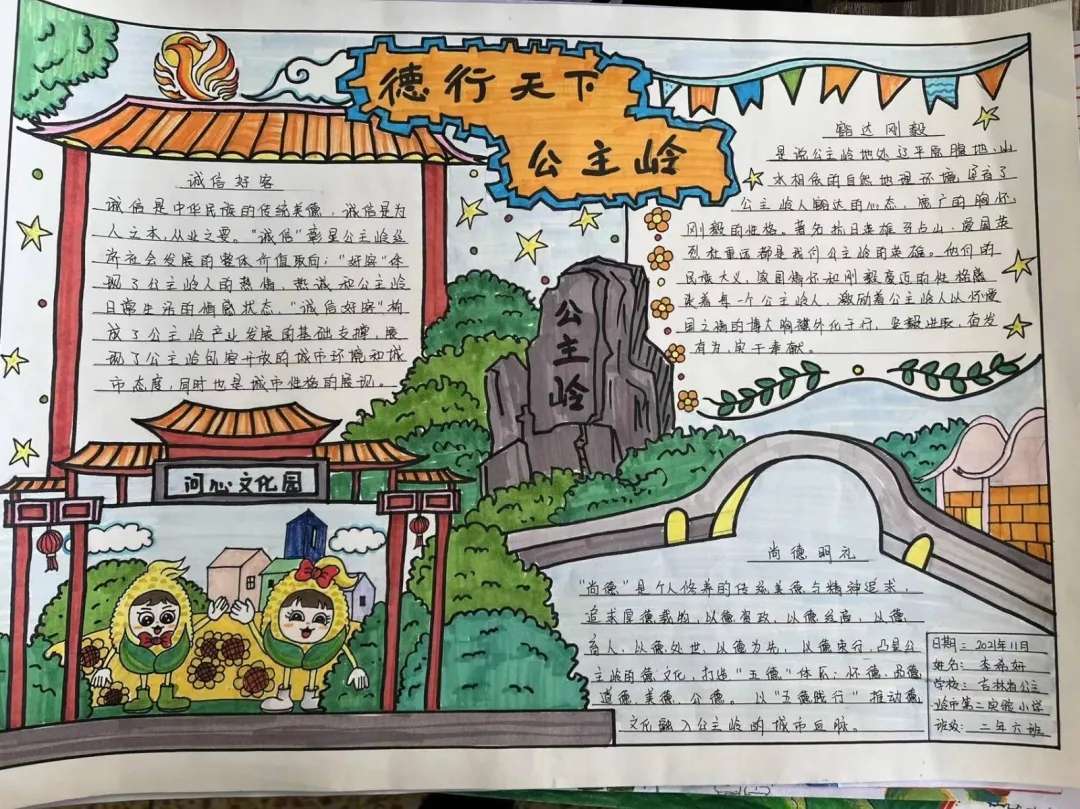 德行天下
公主岭
诚信好客
诚信是中华民族的传统美德，诚信是为
人之本，从业之要。"诚信"彰显公主岭经
济社会发展的整体价值取向；"好客"体
现了公主岭人的热情，热诚和公主岭人
日常生活的情感状态。"诚信好客"构
成了公主岭产业发展的基础支撑，展
现了公主岭包容开放的城市环境和城
市态度，同时也是城市性格的展现。
豁达刚毅
是说公主岭地处辽平原腹地，山
水相依的自然地理环境，造就了
公主岭人豁达的心态，宽广的胸怀，
刚毅的性格。著名抗日英雄 占山，爱国英
烈杜重远都是我们公主岭的英雄。他们的
民族大义，家国情怀和刚毅豪迈的性格感
染着每一个公主岭人，激励着公主岭人以怀爱
国之情的博大胸襟外化于行，坚毅进取，奋发
有为，实干奉献。
公主岭
河心文化园
尚德明礼
"尚德"是个人修养的传统美德与精神追求，
追求厚德载物，以德育政，以德经商，以德
育人，以德处世，以德为先，以德束行，凸显公
主岭的德文化，打造"五德"体系：怀德、品德、
道德、美德、公德。以"五德践行"推动德
文化融入公主岭的城市血脉。
日期：2021年11月
姓名：李 妍
学校：吉林省公主
岭市第二实验小学
班级：二年六班